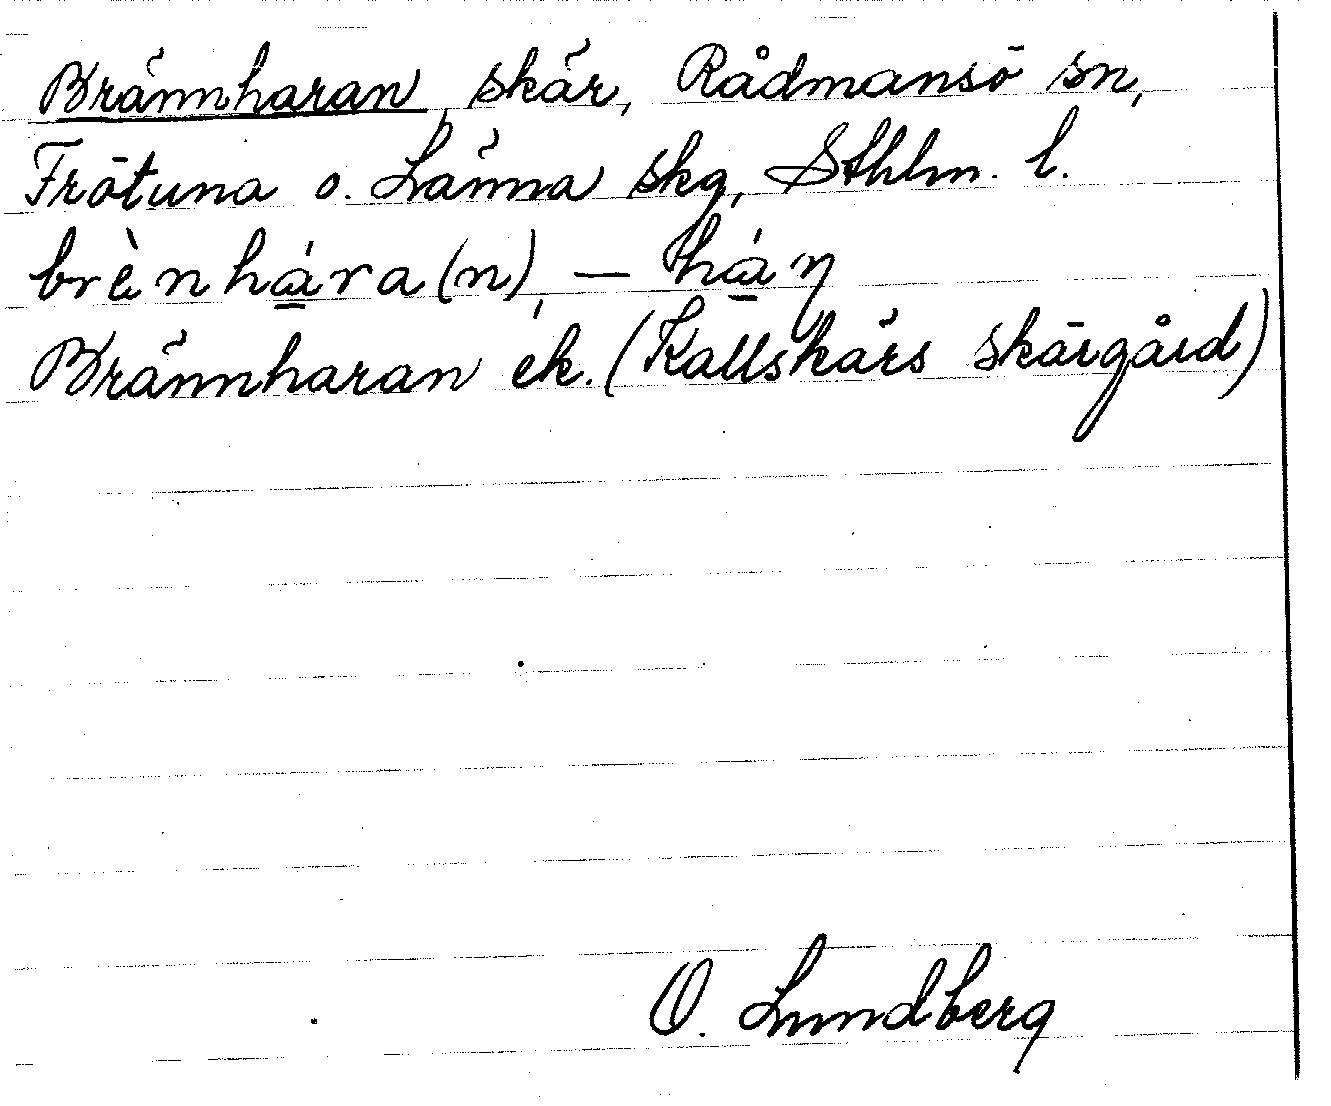 Brännharan, skär, Rådmansö sn,
Frötuna o. Länna skg, Sthlm. l.
brènhá̱ra(n), – há̱ŋ
Brännharan ek. (Kallskärs skärgård)
O. Lundberg